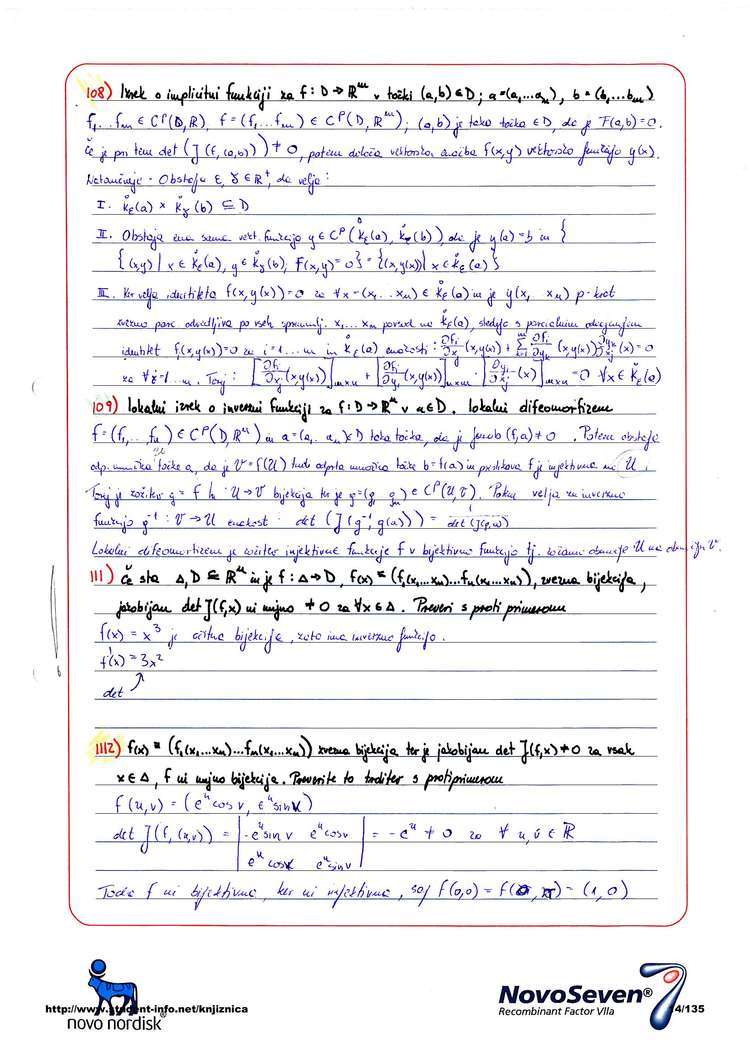 108) Izrek o implicitni funkciji za f: D → ℝᵐ v točki (a,b) ∈ D; a=(a₁...aₙ), b=(b₁...bₘ)
f₁...fₘ ∈ Cᵖ(D,ℝ), f=(f₁...fₘ) ∈ Cᵖ(D,ℝᵐ); (a,b) je taka točka ∈D, da je F(a,b)=0.
Če je pri tem det(J(f,(a,b))) ≠ 0, potem določa vektorska enačba f(x,y) vektorsko funkcijo y(x).
Natančneje - Obstaja ε, γ ∈ ℝ⁺, da velja:
I. K̊ε(a) × K̊γ(b) ⊆ D
II. Obstaja ena sama vekt. funkcija y ∈ Cᵖ(K̊ε(a), K̊γ(b)), da je y(a)=b in {
{(x,y) | x ∈ K̊ε(a), y ∈ K̊γ(b), F(x,y)=0} = {(x,y(x)) | x ∈ K̊ε(a)}
III. Ker velja identiteta f(x,y(x))=0 za ∀x=(x₁...xₙ) ∈ K̊ε(a) in je y(x₁ xₙ) p-krat
zvezno parc. odvedljiva po vseh spremenlj. x₁...xₙ povsod na K̊ε(a), sledijo s parcialnim odvajanjem
identitet fᵢ(x,y(x))=0 za i=1...m in K̊ε(a) enakosti: ∂fᵢ/∂xⱼ (x,y(x)) + Σₖ₌₁ᵐ ∂fᵢ/∂yₖ (x,y(x)) ∂yₖ/∂xⱼ (x)=0
za ∀j=1...n. Torej: [∂fᵢ/∂xⱼ (x,y(x))]ₘₓₙ + [∂fᵢ/∂yⱼ (x,y(x))]ₘₓₘ · [∂yᵢ/∂xⱼ (x)]ₘₓₙ = 0 ∀x ∈ K̊ε(a)
109) Lokalni izrek o inverzni funkciji za f: D → ℝⁿ v a∈D. Lokalni difeomorfizem
f=(f₁,...fₙ) ∈ Cᵖ(D,ℝⁿ) in a=(a₁..aₙ)∈D taka točka, da je Jacob(f,a) ≠ 0. Potem obstaja
odp. množica U točke a, da je V=f(U) tudi odprta množica točke b=f(a) in preslikava f je injektivna na U.
Torej je zožitev g = f |ᵤ: U→V bijekcija ter je g=(g₁ gₙ) ∈ Cᵖ(U,V). Poleg velja za inverzno
funkcijo g⁻¹: V→U enakost: det(J(g⁻¹, g(a))) = 1/det(J(g,a))
Lokalni difeomorfizem je zožitev injektivne funkcije f v bijektivno funkcijo tj. območje U na območju V.
111) Če sta Δ, D ⊆ ℝⁿ in je f: Δ→D, f(x) = (f₁(x₁...xₙ)...fₙ(x₁...xₙ)), zvezna bijekcija,
jakobijan det J(f,x) ni nujno ≠ 0 za ∀x∈Δ. Preveri s proti primerom
f(x) = x³ je očitna bijekcija, zato ima inverzno funkcijo.
f'(x) = 3x²
det
1112) f(x) = (f₁(x₁...xₙ)...fₙ(x₁...xₙ)) zvezna bijekcija ter je jakobijan det J(f,x) ≠ 0 za vsak
x∈Δ, f ni nujno bijekcija. Preverite to trditev s protiprimerom
f(u,v) = (eᵘ cos v, eᵘ sin v)
det J(f,(u,v)) = | -eᵘ sin v eᵘ cos v | = -eᵘ ≠ 0 za ∀ u,v ∈ ℝ
eᵘ cos v eᵘ sin v
Toda f ni bijektivna, ker ni injektivna, saj f(0,0) = f(0, π) = (1,0)
http://www.student-info.net/knjiznica
novo nordisk®
NovoSeven®
Recombinant Factor VIIa
4/135